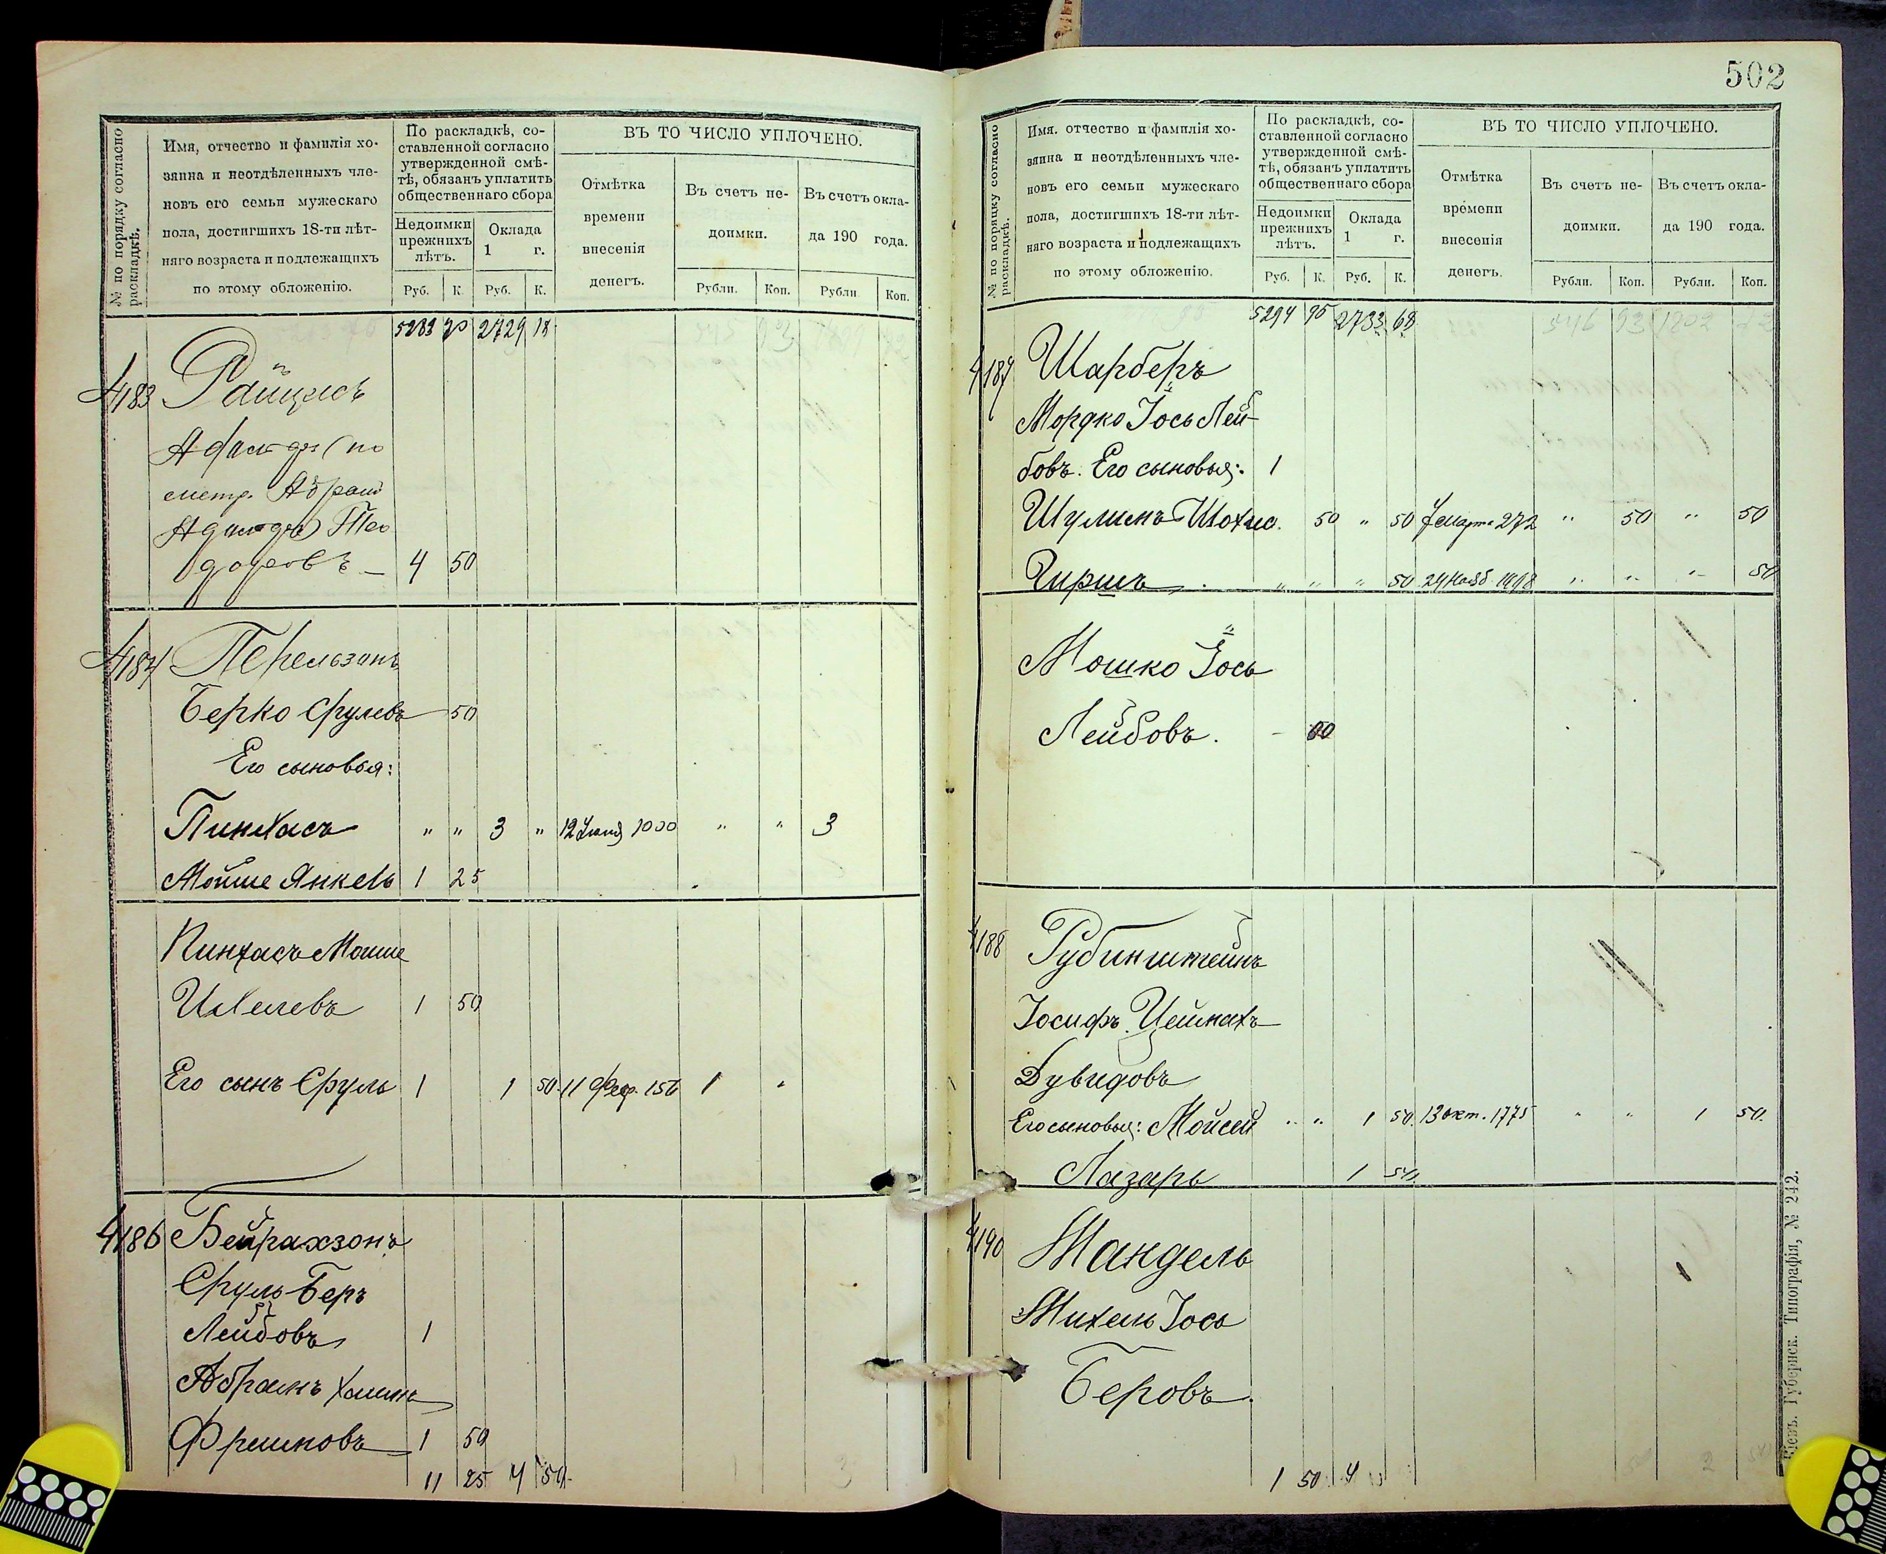 № по порядку согласно раскладкѣ.
Имя, отчество и фамилія хо-
зяина и неотдѣленныхъ чле-
новъ его семьи мужескаго
пола, достигшихъ 18-ти лѣт-
няго возраста и подлежащихъ
по этому обложенію.
По раскладкѣ, со-
ставленной согласно
утвержденной смѣ-
тѣ, обязанъ уплатить
общественнаго сбора
Недоимки
прежнихъ
лѣтъ.
Оклада
1 г.
Руб. К. Руб. К.
ВЪ ТО ЧИСЛО УПЛОЧЕНО.
Отмѣтка
времени
внесенія
денегъ.
Въ счетъ не-
доимки.
Въ счетъ окла-
да 190 года.
Рубли. Коп. Рубли Коп.
5283 70 2729 18
4183
4 50
4184 Перельзонъ
Берко Срулевъ 50
Его сыновья:
Пинхасъ " " 3 " 12 1000 " " 3
Мойше Янкель 1 25
Пинхасъ Мойше
1 50
Его сынъ Сруль 1 1 50 11 Фев. 156 1
4186 Бейрахзонъ
Сруль Беръ
Лейбовъ 1
Абрамъ
1 50
11 25 4 50
502
№ по порядку согласно раскладкѣ.
Имя. отчество и фамилія хо-
зяина и неотдѣленныхъ чле-
новъ его семьи мужескаго
пола, достигшихъ 18-ти лѣт-
няго возраста и подлежащихъ
по этому обложенію.
По раскладкѣ, со-
ставленной согласно
утвержденной смѣ-
тѣ, обязанъ уплатить
общественнаго сбора
Недоимки
прежнихъ
лѣтъ.
Оклада
1 г.
Руб. К. Руб. К.
ВЪ ТО ЧИСЛО УПЛОЧЕНО.
Отмѣтка
времени
внесенія
денегъ.
Въ счетъ не-
доимки.
Въ счетъ окла-
да 190 года.
Рубли. Коп. Рубли. Коп.
5294 95 2733 68
4187 Шарберъ
Мордко Іось Лей-
бовъ. Его сыновья: 1
Шулимъ 50 " 50 7 марта 272 " 50 " 50
Гиршъ " " " 50 24 Нояб 1998 " " " 50
Мошко Іось
Лейбовъ.
4188 Рубинштейнъ
Іосифъ Цеймахъ
Дувидовъ
Его сыновья: Мойсей " " 1 50 13 окт. 1775 " " 1 50.
Лазарь 1 50
4190 Мандель
Михель Іось
Беровъ.
1 50 4
Кіевъ. Губернск. Типографія, № 242.